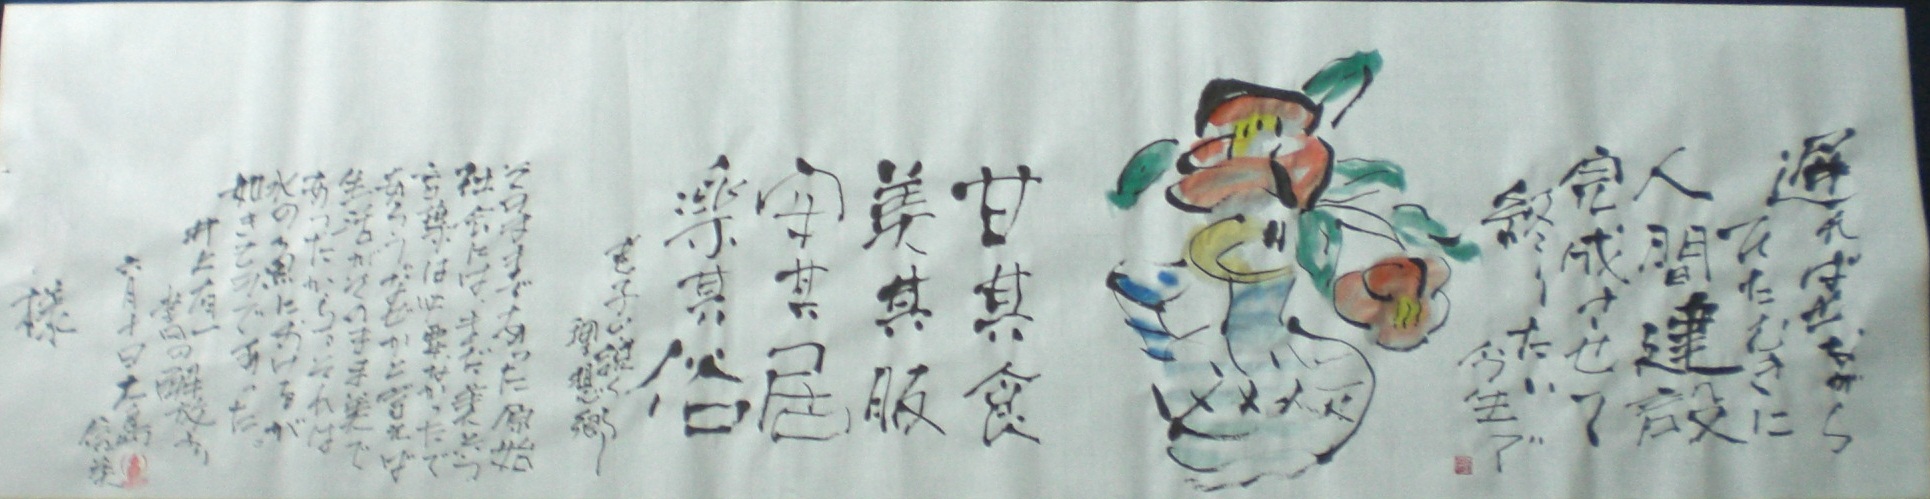 遅ればせながら
ひたむきに
人間建設
完成させて
終りたい
今生で
甘其食
美其服
安其居
楽其俗
老子の説く
理想郷
そのままであった原始
社会には、まだ美という
言葉は必要なかったで
あろう。なぜかと言えば
生活がそのまま美で
あったからだ。それは
水の魚におけるが
如きことであった。
井上有一
六月十日大島
様